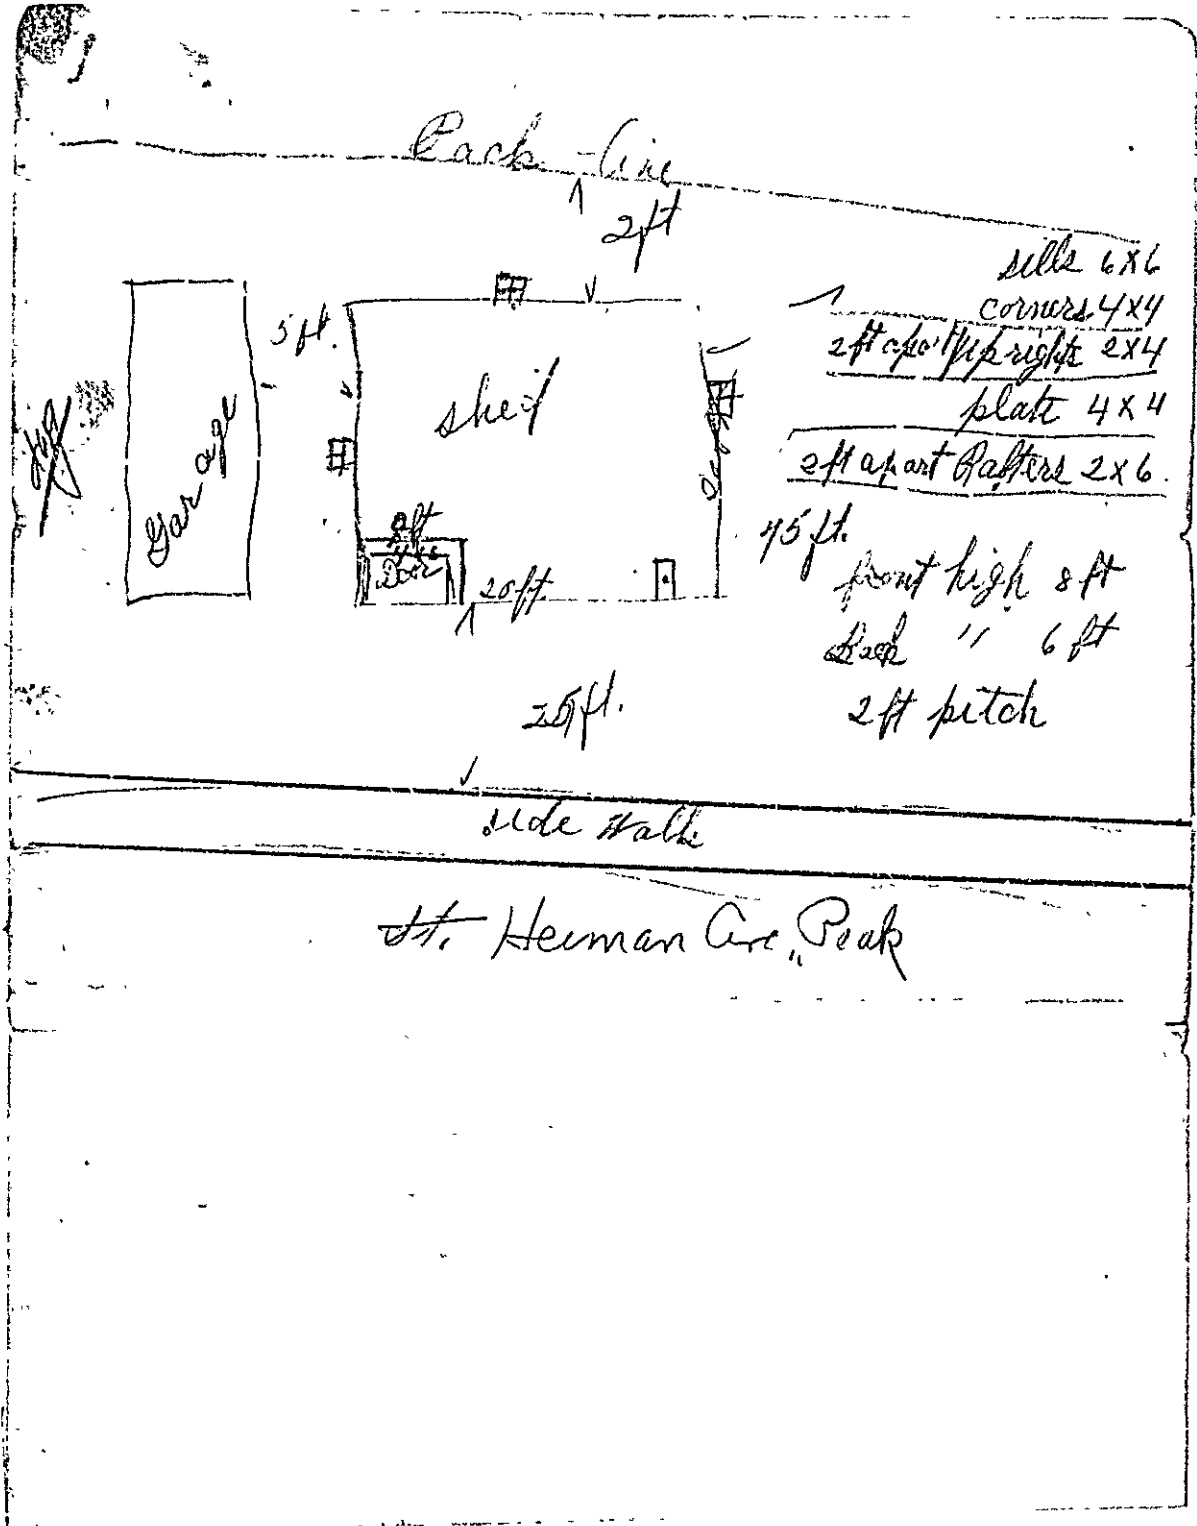 Back - line
2ft
sills 6x6
corners 4x4
2ft apart Uprights 2x4
plate 4x4
2ft apart Rafters 2x6
5 ft.
shed
Garage
8ft
Door
20ft
45 ft.
front high 8 ft
Back " 6 ft
2 ft pitch
25ft.
side Walk
St. Herman Ave, Peak